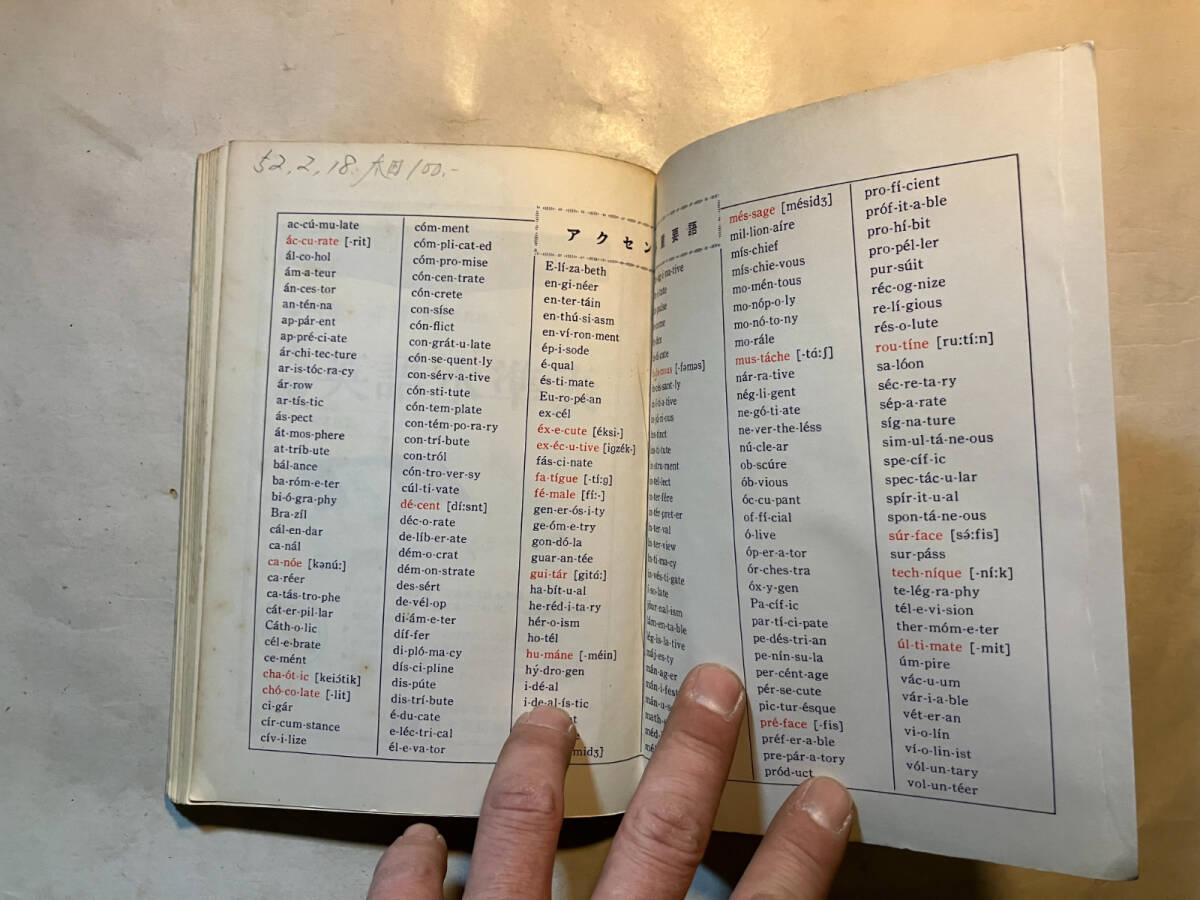 52, 2, 18. 太田 100.-
ac-cú-mu-late
ác-cu-rate [-rit]
ál-co-hol
ám-a-teur
án-ces-tor
an-tén-na
ap-pár-ent
ap-pré-ci-ate
ár-chi-tec-ture
ar-is-tóc-ra-cy
ár-row
ar-tís-tic
ás-pect
át-mos-phere
at-tríb-ute
bál-ance
ba-róm-e-ter
bi-ó-gra-phy
Bra-zíl
cál-en-dar
ca-nál
ca-nóe [kənú:]
ca-réer
ca-tás-tro-phe
cát-er-pil-lar
Cáth-o-lic
cél-e-brate
ce-mént
cha-ót-ic [keiɔ́tik]
chó-co-late [-lit]
ci-gár
cír-cum-stance
cív-i-lize
cóm-ment
cóm-pli-cat-ed
cóm-pro-mise
cón-cen-trate
cón-crete
con-síse
cón-flict
con-grát-u-late
cón-se-quent-ly
con-sérv-a-tive
cón-sti-tute
cón-tem-plate
con-tém-po-ra-ry
con-trí-bute
con-tról
cón-tro-ver-sy
cúl-ti-vate
dé-cent [dí:snt]
déc-o-rate
de-líb-er-ate
dém-o-crat
dém-on-strate
des-sért
de-vél-op
di-ám-e-ter
díf-fer
di-pló-ma-cy
dís-ci-pline
dis-púte
dis-trí-bute
é-du-cate
e-léc-tri-cal
él-e-va-tor
アクセン
要語
E-lí-za-beth
en-gi-néer
en-ter-táin
en-thú-si-asm
en-ví-ron-ment
ép-i-sode
é-qual
és-ti-mate
Eu-ro-pé-an
ex-cél
éx-e-cute [éksi-]
ex-éc-u-tive [igzék-]
fás-ci-nate
fa-tígue [-tí:g]
fé-male [fí:-]
gen-er-ós-i-ty
ge-óm-e-try
gon-dó-la
guar-an-tée
gui-tár [gitá:]
ha-bít-u-al
he-réd-i-ta-ry
hér-o-ism
ho-tél
hu-máne [-méin]
hý-dro-gen
i-dé-al
i-de-al-ís-tic
midʒ]
[-fəməs]
ín-ter-view
ín-ti-ma-cy
in-vés-ti-gate
í-so-late
jóur-nal-ism
lám-en-ta-ble
lég-is-la-tive
máj-es-ty
mán-ag-er
més-sage [mésidʒ]
mil-lion-aíre
mís-chief
mís-chie-vous
mo-mén-tous
mo-nóp-o-ly
mo-nó-to-ny
mo-rále
mus-táche [-tá:ʃ]
nár-ra-tive
nég-li-gent
ne-gó-ti-ate
ne-ver-the-léss
nú-cle-ar
ob-scúre
ób-vious
óc-cu-pant
of-fí-cial
ó-live
óp-er-a-tor
ór-ches-tra
óx-y-gen
Pa-cíf-ic
par-tí-ci-pate
pe-dés-tri-an
pe-nín-su-la
per-cént-age
pér-se-cute
pic-tur-ésque
pré-face [-fis]
préf-er-a-ble
pre-pár-a-tory
pród-uct
pro-fí-cient
próf-it-a-ble
pro-hí-bit
pro-pél-ler
pur-súit
réc-og-nize
re-lí-gious
rés-o-lute
rou-tíne [ru:tí:n]
sa-lóon
séc-re-ta-ry
sép-a-rate
síg-na-ture
sim-ul-tá-ne-ous
spe-cíf-ic
spec-tác-u-lar
spír-it-u-al
spon-tá-ne-ous
súr-face [sə́:fis]
sur-páss
tech-níque [-ní:k]
te-lég-ra-phy
tél-e-vi-sion
ther-móm-e-ter
úl-ti-mate [-mit]
úm-pire
vác-u-um
vár-i-a-ble
vét-er-an
vi-o-lín
ví-o-lin-ist
vól-un-tary
vol-un-téer